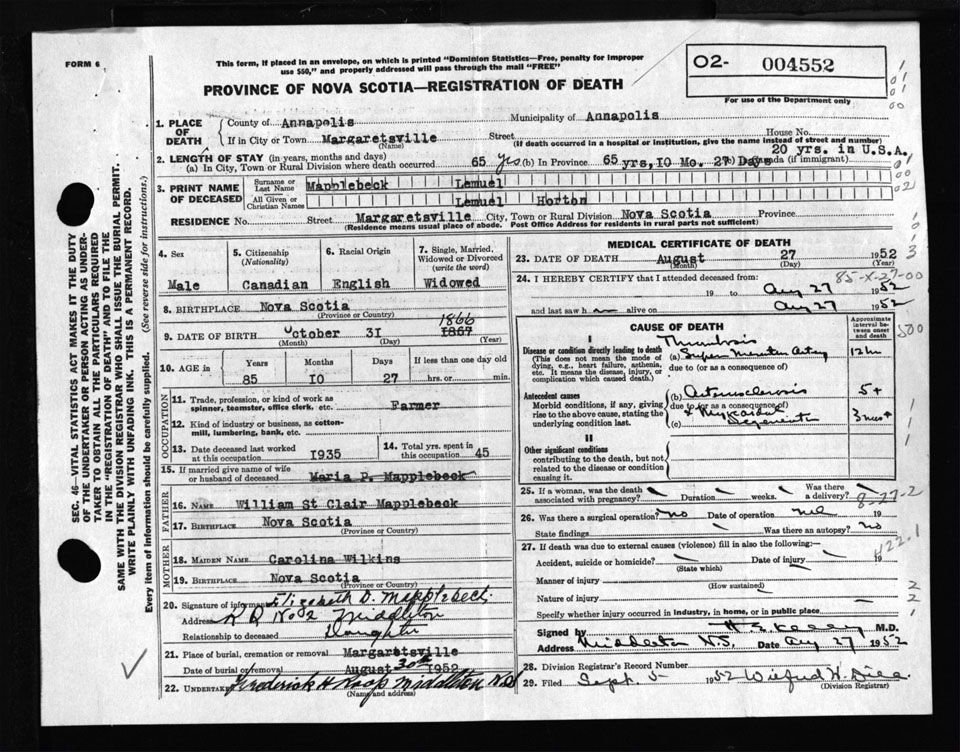 FORM 6
This form, if placed in an envelope, on which is printed "Dominion Statistics—Free, penalty for improper
use $50," and properly addressed will pass through the mail "FREE"
PROVINCE OF NOVA SCOTIA—REGISTRATION OF DEATH
O2- 004552
For use of the Department only
1. PLACE OF DEATH
County of Annapolis Municipality of Annapolis
If in City or Town Margaretsville Street House No.
(Name) (If death occurred in a hospital or institution, give the name instead of street and number)
2. LENGTH OF STAY (in years, months and days) 20 yrs. in U.S.A.
(a) In City, Town or Rural Division where death occurred 65 yrs (b) In Province 65 yrs, 10 Mo. 27 Days (if immigrant)
3. PRINT NAME OF DECEASED
Surname or Last Name Mapplebeck Lemuel
All Given or Christian Names Lemuel Horton
RESIDENCE No. Street Margaretsville City, Town or Rural Division Nova Scotia Province
(Residence means usual place of abode. Post Office Address for residents in rural parts not sufficient)
4. Sex Male
5. Citizenship (Nationality) Canadian
6. Racial Origin English
7. Single, Married, Widowed or Divorced (write the word) Widowed
8. BIRTHPLACE Nova Scotia
(Province or Country)
1866
9. DATE OF BIRTH October 31 1867
(Month) (Day) (Year)
10. AGE in Years 85 Months 10 Days 27 If less than one day old hrs. or min.
OCCUPATION
11. Trade, profession, or kind of work as spinner, teamster, office clerk, etc. Farmer
12. Kind of industry or business, as cotton-mill, lumbering, bank, etc.
13. Date deceased last worked at this occupation 1935
14. Total yrs. spent in this occupation 45
15. If married give name of wife or husband of deceased Maria P. Mapplebeck
FATHER
16. NAME William St Clair Mapplebeck
17. BIRTHPLACE Nova Scotia
(Province or Country)
MOTHER
18. MAIDEN NAME Carolina Wilkins
19. BIRTHPLACE Nova Scotia
(Province or Country)
20. Signature of informant Elizabeth D. Mapplebeck
Address R R No 2 Middleton
Relationship to deceased Daughter
21. Place of burial, cremation or removal Margaretsville
Date of burial or removal August 30th 1952
22. Undertaker Frederick H Roop Middleton N.S.
(Name and address)
MEDICAL CERTIFICATE OF DEATH
23. DATE OF DEATH August 27 1952
(Month) (Day) (Year)
85-X-27-00
24. I HEREBY CERTIFY that I attended deceased from:
19 to Aug 27 1952
and last saw h m alive on Aug 27 1952
CAUSE OF DEATH
Approximate interval between onset and death
I
Disease or condition directly leading to death
(This does not mean the mode of dying, e.g., heart failure, asthenia, etc. It means the disease, injury, or complication which caused death.)
Thrombosis
(a) Super Mesenter Artery 12 hr
due to (or as a consequence of)
Antecedent causes
Morbid conditions, if any, giving rise to the above cause, stating the underlying condition last.
(b) Arteriosclerosis 5+
due to (or as a consequence of)
(c) & Myocardial Degeneration
II
Other significant conditions
contributing to the death, but not related to the disease or condition causing it.
25. If a woman, was the death associated with pregnancy? Duration weeks. Was there a delivery?
8-27-2
26. Was there a surgical operation? No Date of operation nil 19
State findings Was there an autopsy? No
27. If death was due to external causes (violence) fill in also the following:—
422.1
Accident, suicide or homicide? Date of injury 19
(State which)
Manner of injury
(How sustained)
Nature of injury
Specify whether injury occurred in industry, in home, or in public place
Signed by H E Kelley M.D.
Address Middleton N.S. Date Aug 27 1952
28. Division Registrar's Record Number
29. Filed Sept. 5 1952 Wilfred W.
(Division Registrar)
SEC. 46—VITAL STATISTICS ACT MAKES IT THE DUTY
OF THE UNDERTAKER OR PERSON ACTING AS UNDER-
TAKER TO OBTAIN ALL THE PARTICULARS REQUIRED
IN THE "REGISTRATION OF DEATH" AND TO FILE THE
SAME WITH THE DIVISION REGISTRAR WHO SHALL ISSUE THE BURIAL PERMIT.
WRITE PLAINLY WITH UNFADING INK. THIS IS A PERMANENT RECORD.
Every item of information should be carefully supplied. (See reverse side for instructions.)